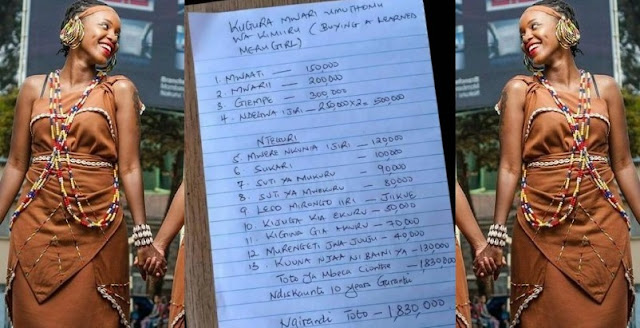 KUGURA MWARI UMUTHOMU
WA KIMIIRU (BUYING A LEARNED
MERU GIRL)
1. MWAATI — 150,000
2. MWARII — 200,000
3. GIEMPE — 300,000
4. NDEGWA IJIRI — 250,000 X 2 = 500,000
NTEGURI
5 MWERE NKUNIA IJIRI — 120,000
6 SUKARI — 100,000
7 SUTI YA MUKURU — 90,000
8 SUTI YA MWEKURU — 80,000
9 LESO MIRONGO IIRI —
10. KIJUGA KIA EKURU — 50,000
11. KIGUNA GIA AKURU — 70,000
12 MURENGETI JNA JUUJU — 40,000
13. KUUNA NJAA NI BAINI YA — 130,000
TOTO YA MBECA — 1,830,000
NDISKAUNTA 10 years Garantii
Ngirandi Toto — 1,830,000